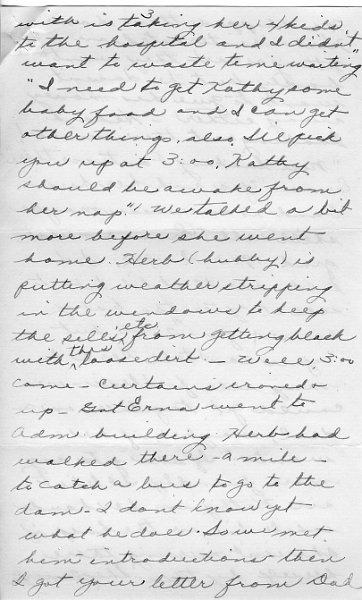 with is taking her 3 4 kids
to the hospital and I didn't
want to waste time waiting
"I need to get Kathy some
baby food and I can get
other things, also. I'll pick
you up at 3:00. Kathy
should be awake from
her nap." We talked a bit
more before she went
home. Herb (hubby) is
putting weather stripping
in the windows to keep
the sills, etc from getting black
with this loose dirt — Well, 3:00
came — Curtains ironed &
up — Erna went to
Adm building Herb had
walked there — a mile —
to catch a bus to go to the
dam — I don't know yet
what he does. So we met
him introductions then
I got your letter from Dad